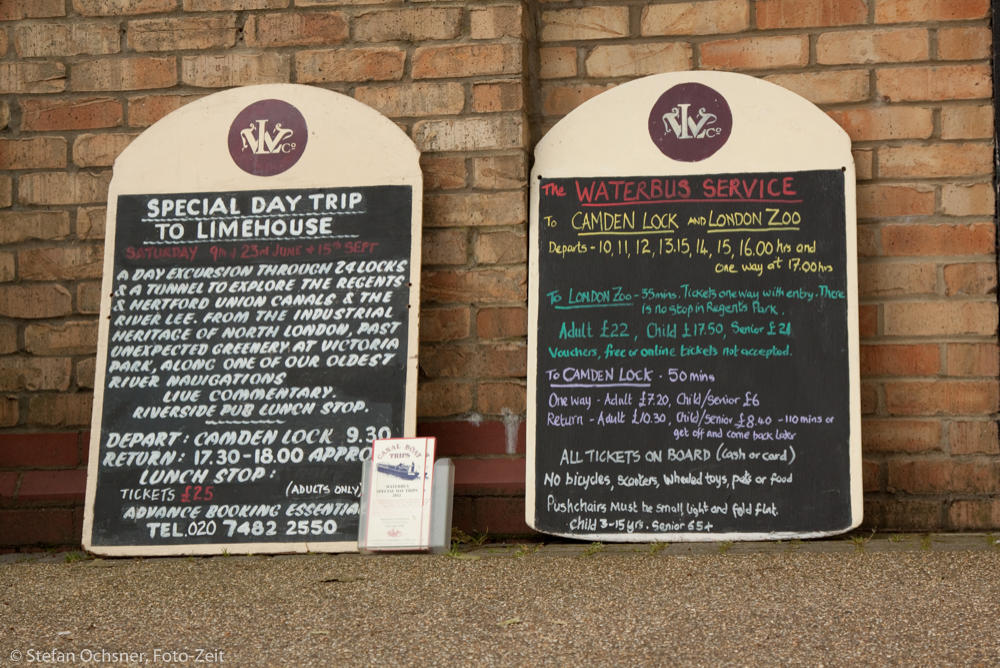 LWCo
SPECIAL DAY TRIP
TO LIMEHOUSE
SATURDAY 9th & 23rd JUNE + 15th SEPT
A DAY EXCURSION THROUGH 24 LOCKS
& A TUNNEL TO EXPLORE THE REGENTS
& HERTFORD UNION CANALS & THE
RIVER LEE. FROM THE INDUSTRIAL
HERITAGE OF NORTH LONDON, PAST
UNEXPECTED GREENERY AT VICTORIA
PARK, ALONG ONE OF OUR OLDEST
RIVER NAVIGATIONS
LIVE COMMENTARY.
RIVERSIDE PUB LUNCH STOP.
DEPART: CAMDEN LOCK 9.30
RETURN: 17.30-18.00 APPRO
LUNCH STOP:
TICKETS £25 (ADULTS ONLY)
ADVANCE BOOKING ESSENTIA
TEL. 020 7482 2550
CANAL BOAT
TRIPS
WATERBUS
SPECIAL DAY TRIPS
2012
LWCo
The WATERBUS SERVICE
To CAMDEN LOCK AND LONDON ZOO
Departs - 10, 11, 12, 13.15, 14, 15, 16.00 hrs and
one way at 17.00hrs
To LONDON ZOO - 35mins. Tickets one way with entry. There
is no stop in Regents Park.
Adult £22, Child £17.50, Senior £21
Vouchers, free or online tickets not accepted.
To CAMDEN LOCK - 50 mins
One way - Adult £7.20, Child/Senior £6
Return - Adult £10.30, Child/Senior £8.40 - 110 mins or
get off and come back later
ALL TICKETS ON BOARD (cash or card)
No bicycles, scooters, wheeled toys, pets or food
Pushchairs must be small, light and fold flat.
Child 3-15 yrs. Senior 65+
© Stefan Ochsner, Foto-Zeit